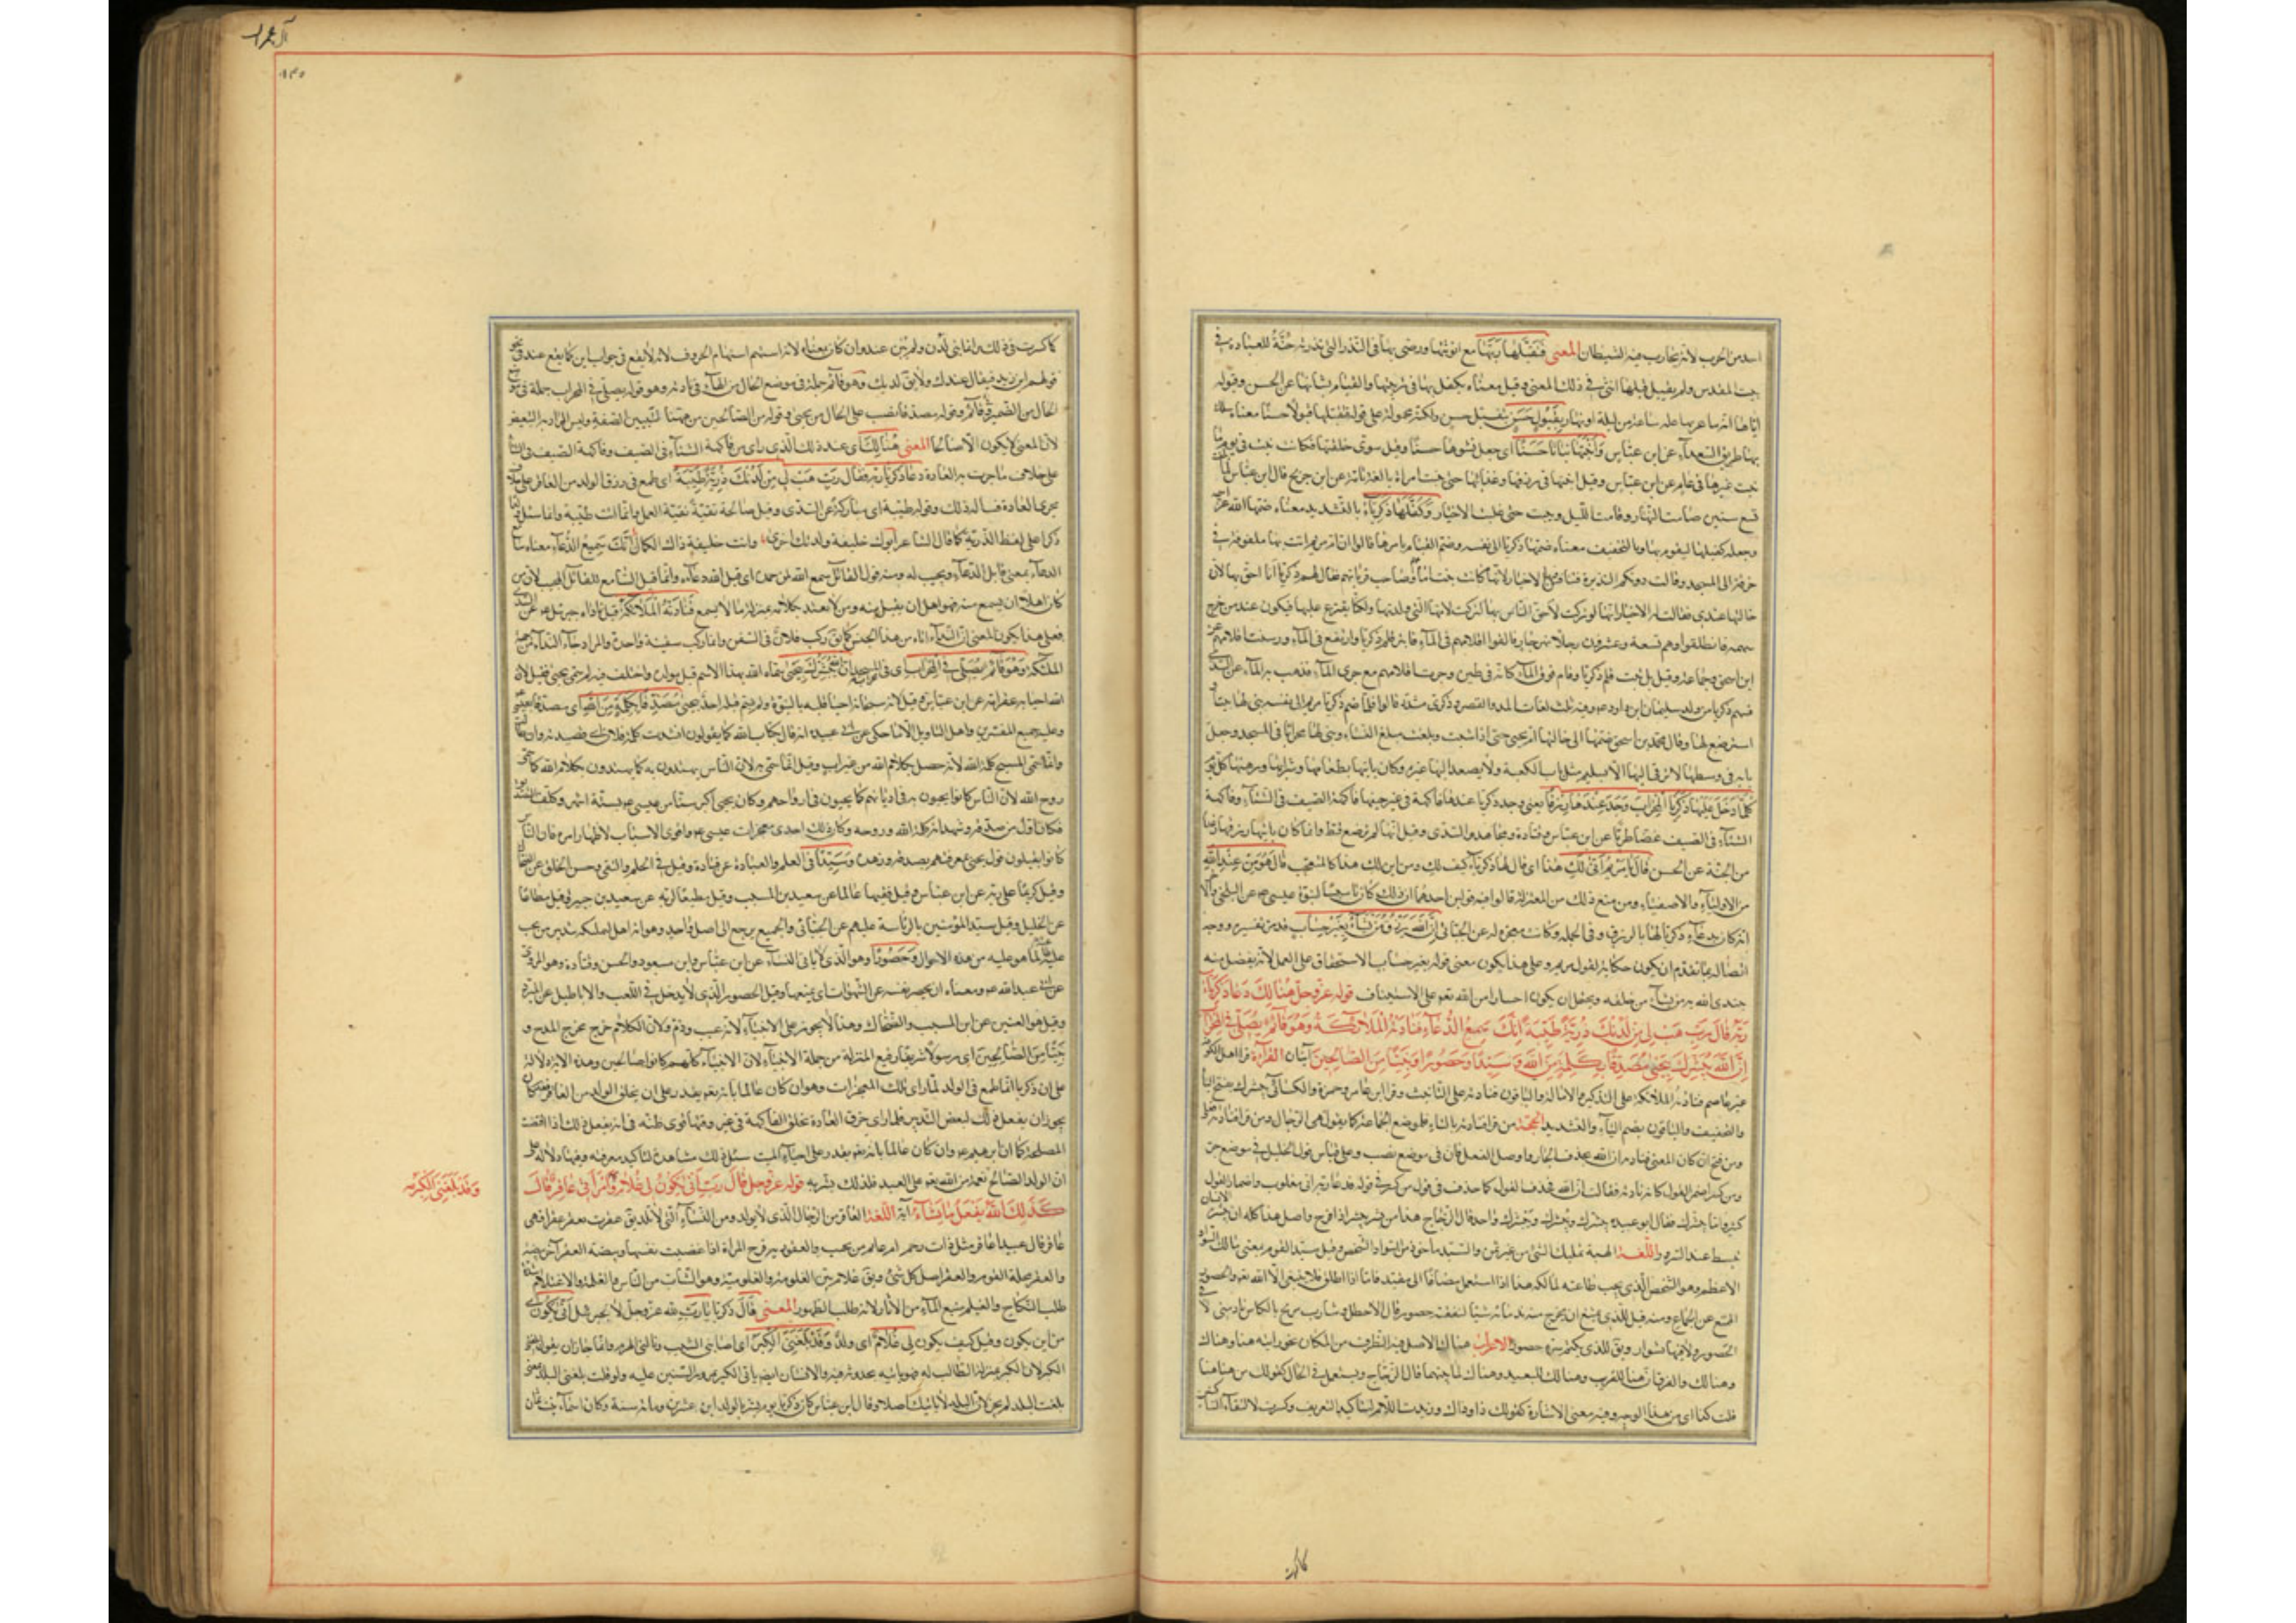 اسد من الحرب لانه يحارب فيه الشيطان المعنى فتقبلها ربها مع انوثتها ورضى بها في النذر الذي نذرته حنة للعبادة في
بيت المقدس ولم يقبل قبلها انثى في ذلك المعنى وقيل معناه تكفل بها في تربيتها والقيام بشأنها عن الحسن وقبوله
اياها انه ما عرتها علة ساعة من ليلة او نهار بقبول حسن
بها طريق السعداء عن ابن عباس وانبتها نباتا حسنا اي جعل نشوها حسنا وقيل سوى خلقها فكانت تنبت في يوم ما
ينبت غيرها في عام عن ابن عباس وقيل انبتها في رزقها وغذائها حتى نمت امراة بالغة تامة عن ابن جريج قال ابن عباس لما
تسع سنين صامت النهار وقامت الليل وتبتلت حتى غلبت الاحبار وكفلها زكريا بالتشديد معناه ضمها الله عز
وجعله كفيلها ليقوم بها وبالتخفيف معناه ضمها زكريا الى نفسه وضمن القيام بامرها قالوا ان ام مريم اتت بها ملفوفة في
خرقة الى المسجد وقالت دونكم النذيرة فتنافس فيها الاحبار لانها كانت بنت امامهم وصاحب قربانهم فقال لهم زكريا انا احق بها لان
خالتها عندي فقالت له الاحبار انها لو تركت لاحق الناس بها لتركت لامها التي ولدتها ولكنا نقترع عليها فتكون عند من خرج
سهمه فانطلقوا وهم تسعة وعشرون رجلا الى نهر جار فالقوا اقلامهم في الماء فارتز قلم زكريا وارتفع فوق الماء ورسبت اقلامهم عن
ابن اسحق وجماعة وقيل بل ثبت قلم زكريا وقام فوق الماء كانه في طين وجرت اقلامهم مع جرى الماء فذهب بها الماء عن السدي
فسهم زكريا من ولد سليمان ابن داود وفيه ثلث لغات المد والقصر وزكرى مشددة قالوا فلما ضم زكريا مريم الى نفسه بنى لها بيتا
استرضع لها وقال محمد بن اسحق ضمها الى خالتها ام يحيى حتى اذا شبت وبلغت مبلغ النساء بنى لها محرابا في المسجد وجعل
بابه في وسطها لا يرقى اليها الا بسلم مثل باب الكعبة ولا يصعد اليها غيره وكان ياتيها بطعامها وشرابها ودهنها كل يوم
كلما دخل عليها زكريا المحراب وجد عندها رزقا يعني وجد زكريا عندها فاكهة في غير حينها فاكهة الصيف في الشتاء وفاكهة
الشتاء في الصيف غضا طريا عن ابن عباس وقتادة ومجاهد والسدي وقيل انها لم ترضع قط وانما كان ياتيها رزقها
من الجنة عن الحسن قال يا مريم انى لك هذا اي قال لها زكريا كيف لك ومن اين لك هذا كالمتعجب قالت هو من عند الله
من الاولياء والاصفياء ومن منع ذلك من المعتزلة قالوا فيه قولين احدهما ان ذلك كان تاسيسا لنبوة عيسى عن البلخي والاخر
انه كان بدعاء زكريا لها بالرزق في الجملة وكانت معجزة له عن الجبائي ان الله يرزق من يشاء بغير حساب قد مر تفسيره ووجه
اتصاله بما تقدم ان يكون حكاية لقول مريم وعلى هذا يكون معنى قوله بغير حساب الاستحقاق على العمل لانه تفضل منه
يبتدى الله به من يشاء من خلقه ويحتمل ان يكون اخبارا من الله تعالى على الاستيناف قوله عز وجل هنالك دعا زكريا
ربه قال رب هب لي من لدنك ذرية طيبة انك سميع الدعاء فنادته الملائكة وهو قائم يصلي في المحراب
ان الله يبشرك بيحيى مصدقا بكلمة من الله وسيدا وحصورا ونبيا من الصالحين آيتان القراءة قرا اهل الكوفة
غير عاصم فناداه الملائكة على التذكير والامالة والباقون فنادته على التانيث وقرا ابن عامر وحمزة والكسائي يبشرك بفتح الياء
والتخفيف والباقون بضم الياء والتشديد الحجة من قرا فنادته بالتاء فلموضع الجماعة كما يقول هي الرجال ومن قرا فناداه
ومن فتح ان كان المعنى فنادته بان الله فحذف الجار واوصل الفعل فان في موضع نصب وعلى قياس قول الخليل في موضع جر
ومن كسر اضمر القول كانه نادته فقالت ان الله فحذف القول كما حذف في قول من كسر في قوله فدعا ربه اني مغلوب واضمار القول
كثير واما يبشرك فقال ابو عبيدة يبشرك ويبشرك واحد قال الزجاج هذا من بشر يبشر اذا فرح واصل هذا كله ان بشرة الانسان
تنبسط عند السرور اللغة الهبة تمليك الشيء من غير ثمن والسيد ماخوذ من السواد الشخص وقيل سيد القوم بمعنى مالك السواد
الاعظم وهو الشخص الذي يجب طاعته لمالكه هذا اذا استعمل مضافا او مقيدا فاما اذا اطلق فلا ينبغي الا لله تعالى والحصور
الممتنع عن الجماع ومنه قيل للذي يمتنع ان يخرج مع ندمائه شيئا للنفقة حصور قال الاخطل وشارب مربح بالكاس نادمني لا
الحصور ولا فيها بسوار ويق للذي يكتم سره حصور الاعراب هنالك الاصل فيه الظرف من المكان نحو رايته هنا وهناك
وهنالك والفرق ان هنا للقريب وهنالك للبعيد وهناك لما بينهما قال الزجاج ويستعمل في الحال كقولك من هاهنا
قلت كذا اي من هذا الوجه وفيه معنى الاشارة كقولك ذا وذاك وزيدت اللام لتاكيد التعريف وكسرت لالتقاء الساكنين
كما كسرت في ذلك وانما بنى لدن ولم يبن عند وان كان بمعناه لانه استبهم استبهام الحروف لانه لا يقع في جواب اين كما يقع عند في نحو
قولهم اين زيد فيقال عندك ولا يق لدنك وهو قائم جملة في موضع الحال من الهاء في نادته وهو قوله يصلي في المحراب جملة في موضع
الحال من الضمير في قائم وقوله مصدقا نصب على الحال من يحيى وقوله من الصالحين من ههنا لتبيين الصفة وليس المراد به التبعيض
لان النبي لا يكون الا صالحا المعنى هنالك اي عند ذلك الذي راى من فاكهة الشتاء في الصيف وفاكهة الصيف في الشتاء
على خلاف ما جرت به العادة دعا زكريا ربه قال رب هب لي من لدنك ذرية طيبة اي طمع في رزق الولد من العاقر على خلاف
مجرى العادة فسال ذلك وقوله طيبة اي مباركة عن السدي وقيل صالحة تقية نقية العمل وانما انث طيبة وانما سئل
ذكرا على لفظ الذرية كما قال الشاعر ابوك خليفة ولدته اخرى وانت خليفة ذاك الكمال انك سميع الدعاء معناه سامع
الدعاء بمعنى قابل الدعاء ومجيب له ومنه قول القائل سمع الله لمن حمده اي قبل الله دعاءه وانما قيل السامع للقابل المجيب لان من
كان اهلا ان يسمع منه فهو اهل ان يقبل منه ومن لا يعتد بكلامه بمنزلة ما لا يسمع فنادته الملائكة قيل ناداه جبرئيل عن السدي
فعلى هذا يكون المعنى اتاه النداء من هذا الجنس كما يق ركب فلان في السفن وانما ركب سفينة واحدة والمراد جاءه النداء من جهة
الملئكة وهو قائم يصلي في المحراب اي في المسجد ان الله يبشرك بيحيى سماه الله بهذا الاسم قبل مولده واختلف فيه لم سمى بيحيى فقيل لان
الله احيا به عقر امه عن ابن عباس وقيل لانه سبحانه احيا قلبه بالنبوة ولم يسم قبله احد بيحيى مصدقا بكلمة من الله اي مصدقا بعيسى
وعليه جميع المفسرين واهل التاويل الا ما حكى عن ابي عبيدة انه قال بكتاب الله كما يقولون انشدت كلمة فلان اي قصيدته وان طالت
وانما سمى المسيح كلمة الله لانه حصل بكلام الله من غير اب وقيل انما سمى به لان الناس يهتدون به كما يهتدون بكلام الله كما سمى
روح الله لان الناس كانوا يحيون به في اديانهم كما يحيون في ارواحهم وكان يحيى اكبر سنا من عيسى بستة اشهر وكلف التصديق به
فكان اول من صدقه وشهد انه كلمة الله وروحه وكان ذلك احدى معجزات عيسى واقوى الاسباب لاظهار امره فان الناس
كانوا يقبلون قول يحيى لمعرفتهم بصدقه وزهده وسيدا في العلم والعبادة عن قتادة وقيل في الحلم والتقى وحسن الخلق عن الضحاك
وقيل كريما على ربه عن ابن عباس وقيل فقيها عالما عن سعيد بن المسيب وقيل مطيعا لربه عن سعيد بن جبير وقيل مطاعا
عن الخليل وقيل سيد المؤمنين بالرئاسة عليهم عن الجبائي والجميع يرجع الى اصل واحد وهو انه اهل لتمليكه تدبير من يجب
عليه طاعته لما هو عليه من هذه الاحوال وحصورا وهو الذي لا ياتي النساء عن ابن عباس وابن مسعود والحسن وقتادة وهو المروي
عن ابي عبد الله ومعناه انه يحصر نفسه عن الشهوات اي يمنعها وقيل الحصور الذي لا يدخل في اللعب والاباطيل عن المبرد
وقيل هو العنين عن ابن المسيب والضحاك وهذا لا يجوز على الانبياء لانه عيب وذم ولان الكلام خرج مخرج المدح و
نبيا من الصالحين اي رسولا شريفا رفيع المنزلة من جملة الانبياء لان الانبياء كلهم كانوا صالحين وهذه الاية دلالة
على ان زكريا انما طمع في الولد لما راى تلك المعجزات وهو ان كان عالما بانه تعالى يقدر على ان يخلق الولد من العاقر فقد كان
يجوز ان يفعل ذلك لبعض التدبير فلما راى خرق العادة بخلق الفاكهة في غير وقتها قوى ظنه في انه يفعل ذلك اذا اقتضت
المصلحة كما ان ابرهيم وان كان عالما بانه تعالى يقدر على احياء الميت سئل ذلك مشاهدة لتاكيد معرفته وفيها دلالة على
ان الولد الصالح نعمة من الله تعالى على العبد فلذلك بشر به قوله عز وجل قال رب انى يكون لي غلام وامراتي عاقر قال
وقد بلغني الكبر
كذلك الله يفعل ما يشاء آية اللغة العاقر من الرجال الذي لا يولد له ومن النساء التي لا تلد يق عقرت تعقر عقرا فهي
عاقر قال عبيد اعاقر مثل ذات رحم ام غانم من يخيب والعقر دية فرج المراة اذا غصبت نفسها وبيضة العقر آخر بيضة
والعقر محلة القوم والعقر اصل كل شيء ويق غلام بين الغلومة والغلومية وهو الشاب من الناس والغلمة والاغتلام شدة
طلب النكاح والغيلم منبع الماء من الابار لانه طلب الظهور المعنى قال زكريا يا رب لله عز وجل لا لجبرئيل انى يكون اي
من اين يكون وقيل كيف يكون لي غلام اي ولد وقد بلغني الكبر اي اصابني الشيب ونالني الهرم وانما جاز ان يقول بلغني
الكبر لان الكبر بمنزلة الطالب له فهو ياتيه بحدوثه فيه والانسان ايضا ياتي الكبر بمرور السنين عليه ولو قلت بلغني البلد بمعنى
بلغت البلد لم يجز لان البلد لا ياتيك اصلا وقال ابن عباس كان زكريا يوم بشر بالولد ابن عشرين ومائة سنة وكانت امراته بنت ثمان